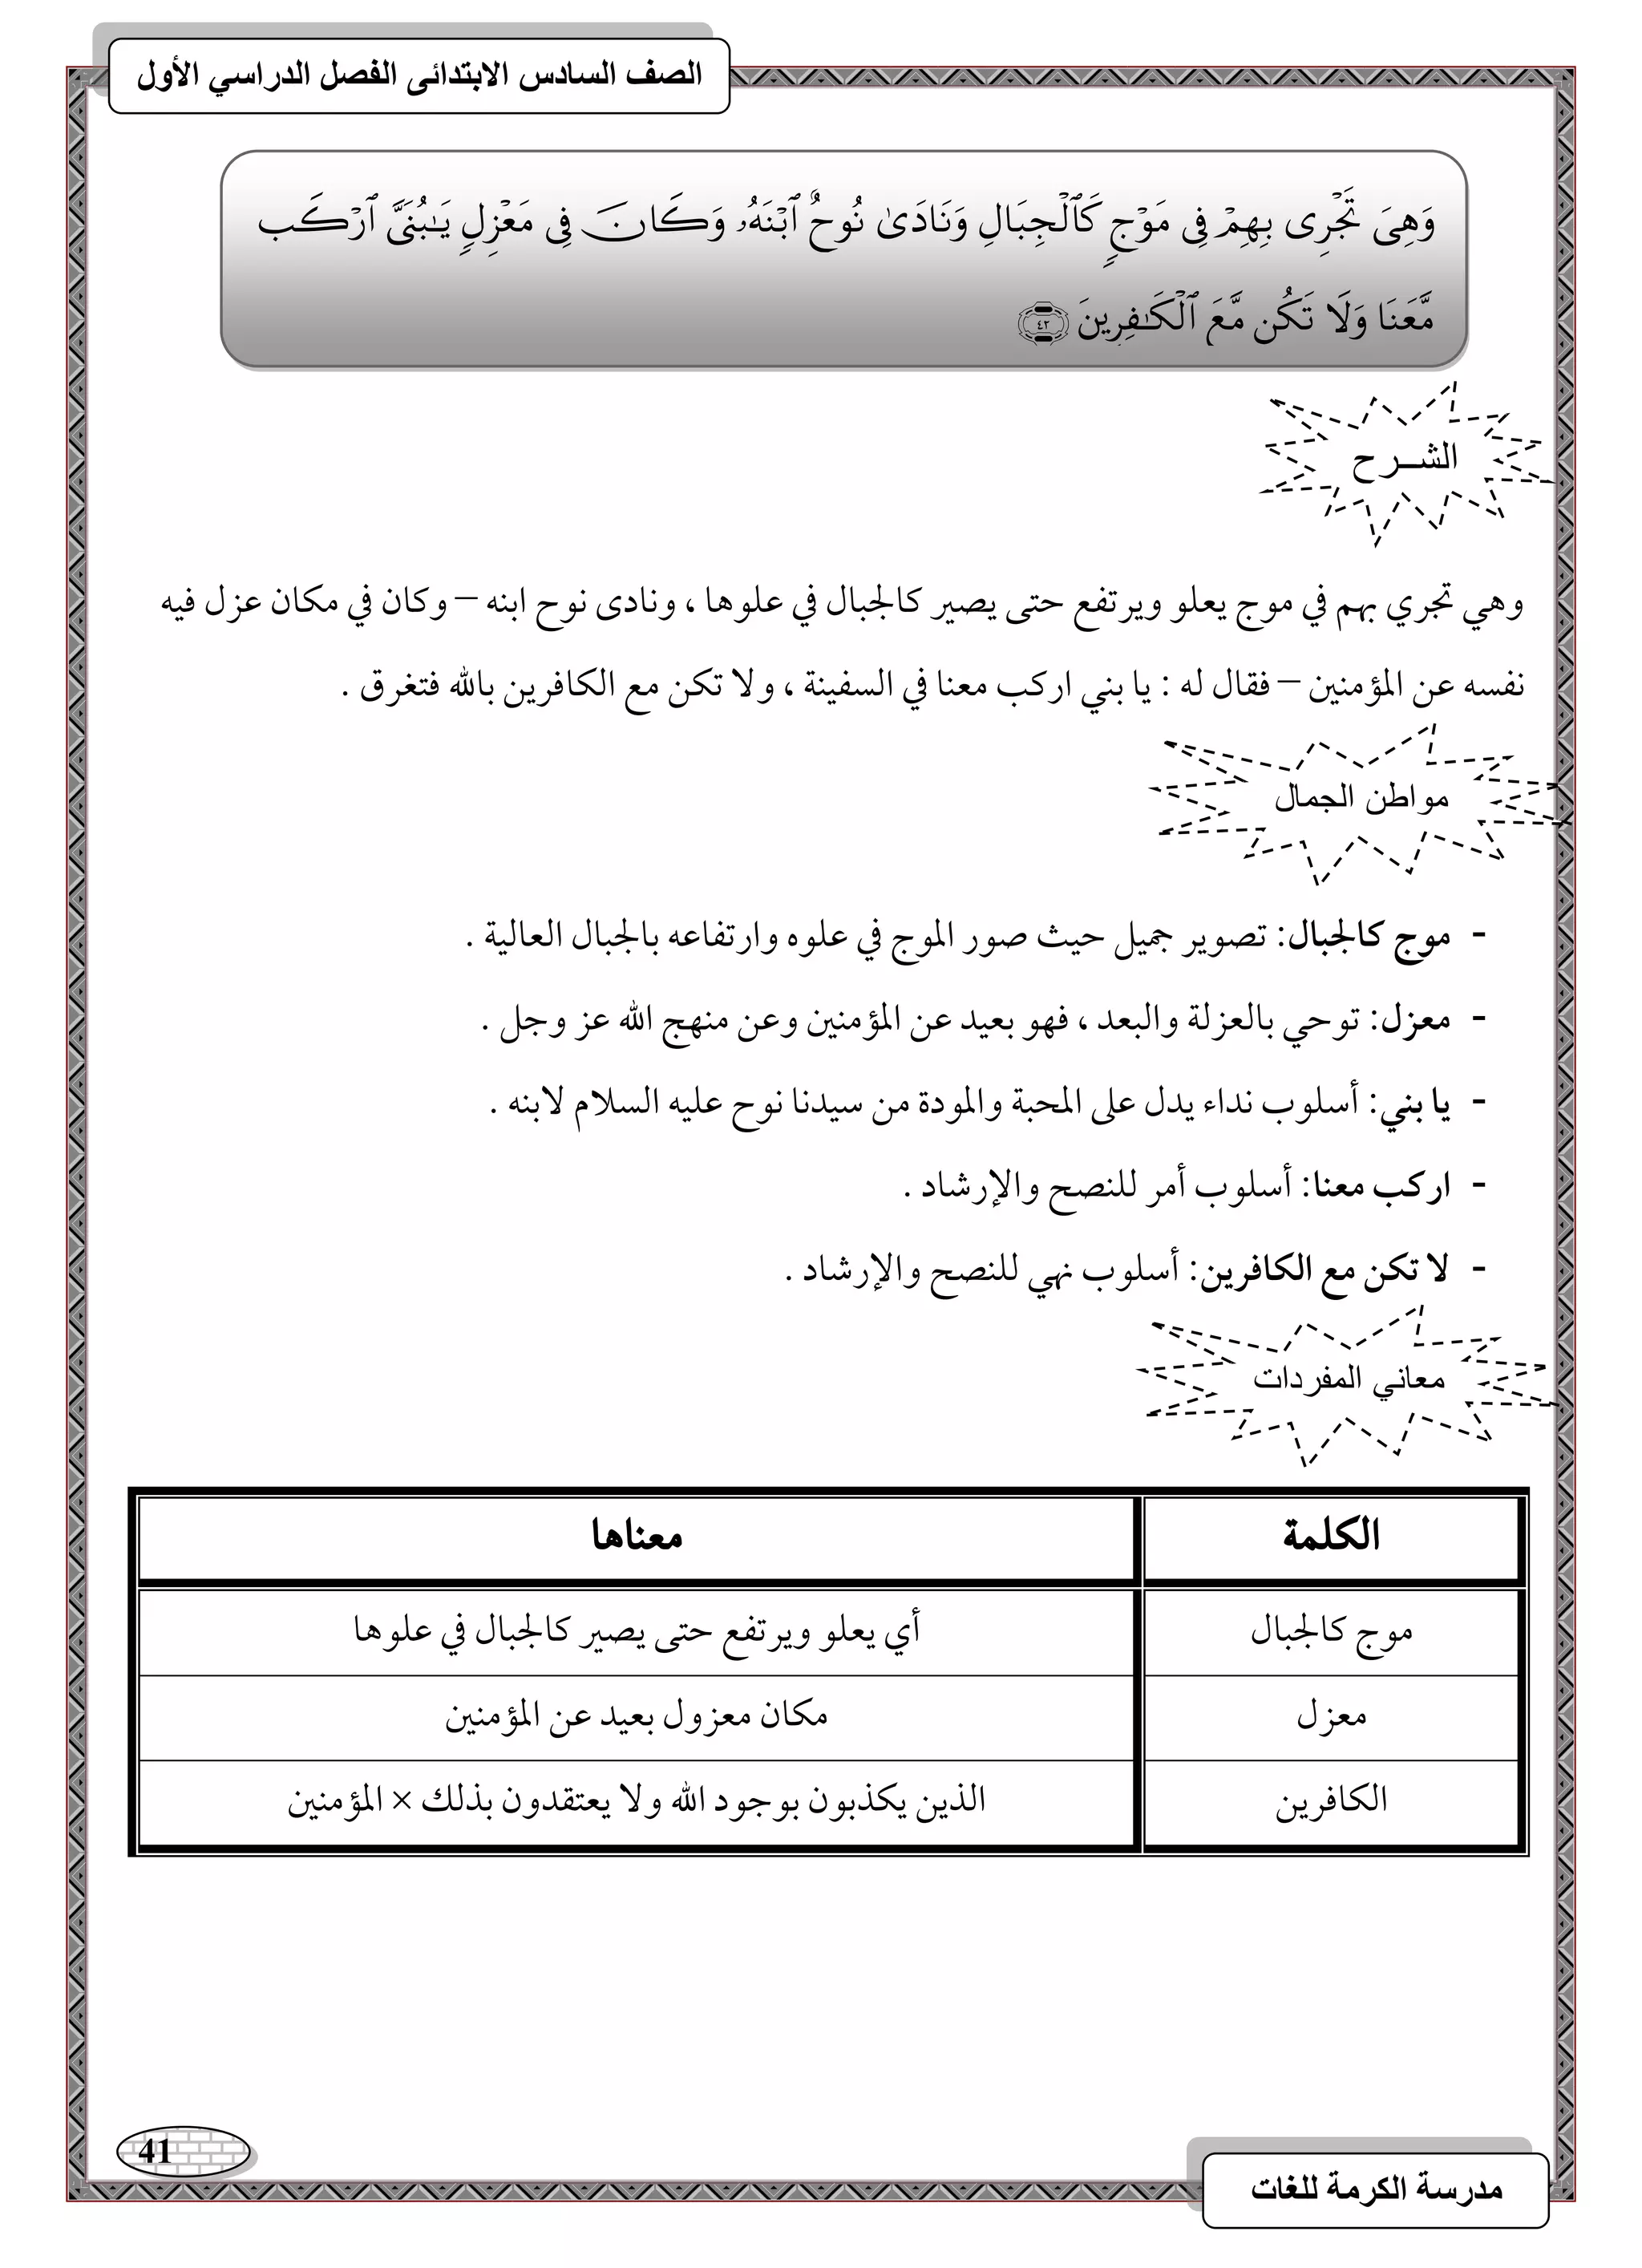 الصف السادس الابتدائى الفصل الدراسي الأول
وَهِىَ تَجْرِى بِهِمْ فِى مَوْجٍ كَٱلْجِبَالِ وَنَادَىٰ نُوحٌ ٱبْنَهُۥ وَكَانَ فِى مَعْزِلٍ يَـٰبُنَىَّ ٱرْكَب
مَّعَنَا وَلَا تَكُن مَّعَ ٱلْكَـٰفِرِينَ ٤٢
الشــرح
وهي تجري بهم في موج يعلو ويرتفع حتى يصير كالجبال في علوها ، ونادى نوح ابنه – وكان في مكان عزل فيه
نفسه عن المؤمنين – فقال له : يا بني اركب معنا في السفينة ، ولا تكن مع الكافرين بالله فتغرق .
مواطن الجمال
- موج كالجبال: تصوير جميل حيث صور الموج في علوه وارتفاعه بالجبال العالية .
- معزل: توحي بالعزلة والبعد ، فهو بعيد عن المؤمنين وعن منهج الله عز وجل .
- يا بني: أسلوب نداء يدل على المحبة والمودة من سيدنا نوح عليه السلام لابنه .
- اركب معنا: أسلوب أمر للنصح والإرشاد .
- لا تكن مع الكافرين: أسلوب نهي للنصح والإرشاد .
معاني المفردات
الكلمة معناها
موج كالجبال أي يعلو ويرتفع حتى يصير كالجبال في علوها
معزل مكان معزول بعيد عن المؤمنين
الكافرين الذين يكذبون بوجود الله ولا يعتقدون بذلك × المؤمنين
41
مدرسة الكرمة للغات